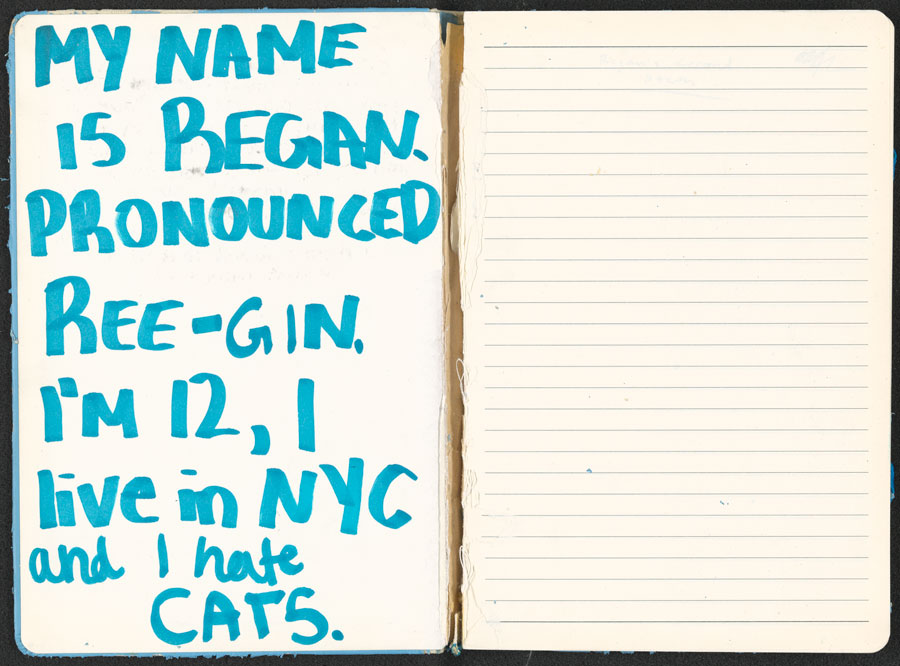 MY NAME
IS REGAN.
PRONOUNCED
REE-GIN.
I'M 12, I
live in NYC
and I hate
CATS.